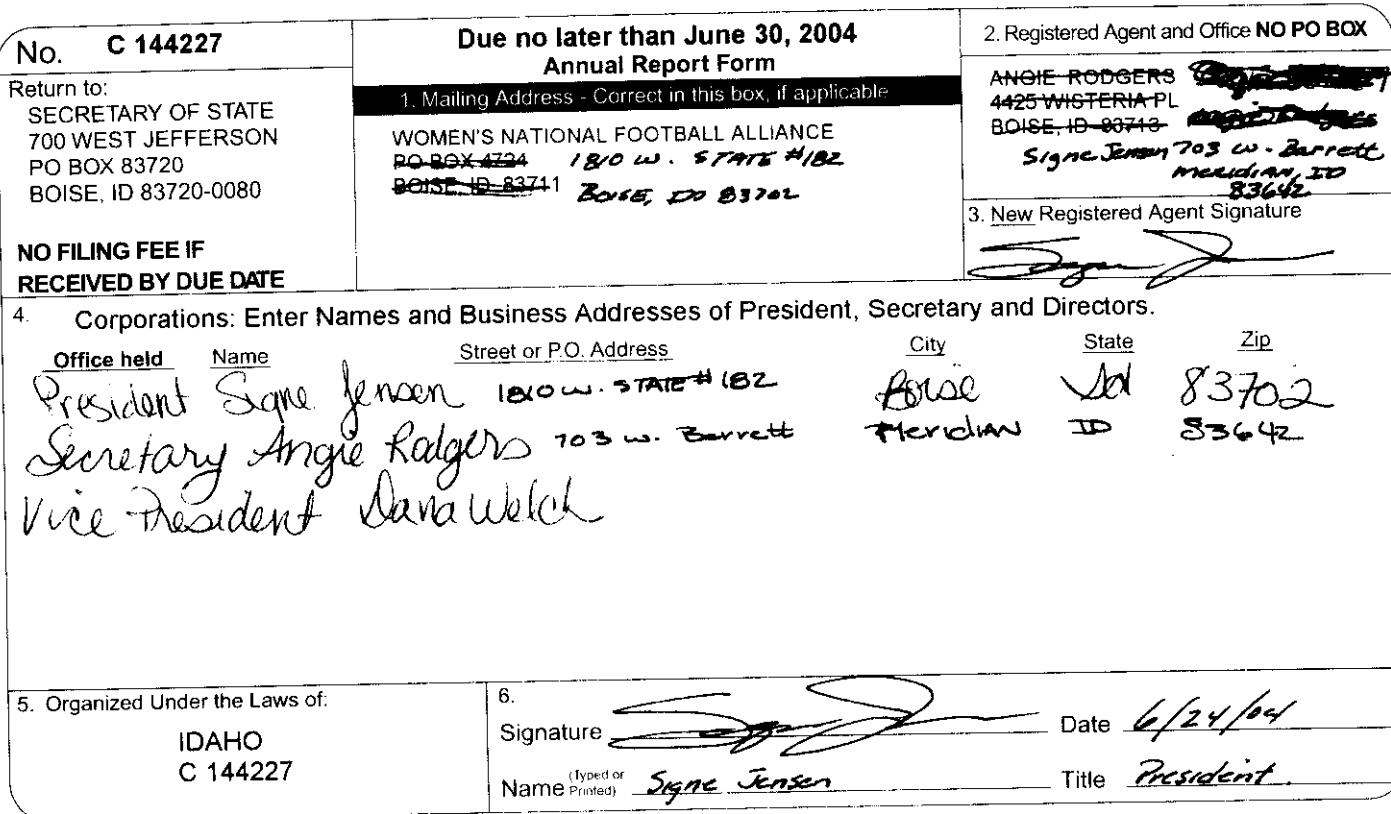 No. C 144227
Return to:
SECRETARY OF STATE
700 WEST JEFFERSON
PO BOX 83720
BOISE, ID 83720-0080
NO FILING FEE IF
RECEIVED BY DUE DATE
Due no later than June 30, 2004
Annual Report Form
1. Mailing Address - Correct in this box, if applicable
WOMEN'S NATIONAL FOOTBALL ALLIANCE
PO BOX 4724 1810 W. STATE #182
BOISE, ID 83711 BOISE, ID 83702
2. Registered Agent and Office NO PO BOX
ANGIE RODGERS
4425 WISTERIA PL
BOISE, ID 83713
Signe Jensen 703 W. Barrett
Meridian, ID
83642
3. New Registered Agent Signature
4. Corporations: Enter Names and Business Addresses of President, Secretary and Directors.
Office held Name Street or P.O. Address City State Zip
President Signe Jensen 1810 W. STATE #182 Boise Id 83702
Secretary Angie Rodgers 703 W. Barrett Meridian ID 83642
Vice President Dana Welch
5. Organized Under the Laws of:
IDAHO
C 144227
6.
Signature Date 6/24/04
Name (Typed or Printed) Signe Jensen Title President.